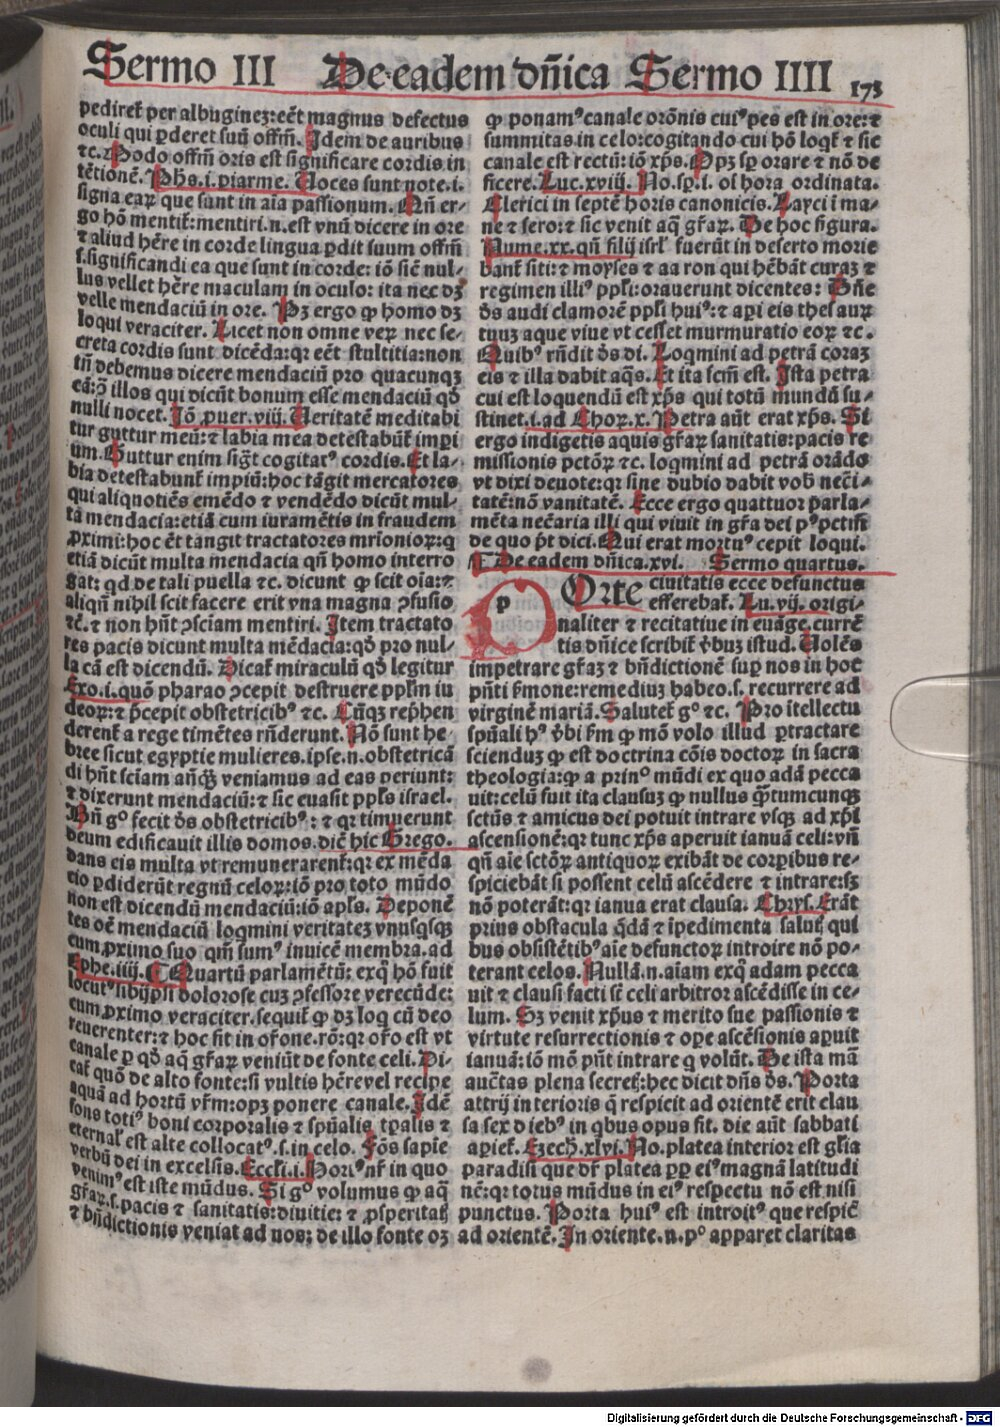 Sermo III De eadem dñica Sermo IIII 173
pediret᷑ per albuginez: eēt magnus defectus
oculi qui ꝑderet suū offm̄. Idem de auribus
⁊c. Modo offm̄ oris est significare cordis in
tētionē. Ph̄s .i. piarme. Uoces sunt note .i.
signa earꝝ que sunt in aīa passionum. Un̄ er-
go hō mentit᷑: mentiri .n. est vnū dicere in ore
⁊ aliud hēre in corde lingua ꝑdit suum offm̄
s. significandi ea que sunt in corde: iō sic̄ nul-
lus vellet hēre maculam in oculo: ita nec dꝫ
velle mendaciū in ore. Dꝫ ergo ꝙ homo dꝫ
loqui veraciter. Licet non omne verꝝ nec se-
creta cordis sunt dicēda: qꝛ eēt stultitia: non
tn̄ debemus dicere mendaciū pro quacunqꝫ
cā: ꝯ̄ illos qui dicūt bonum esse mendaciū qđ
nulli nocet. Iō ꝓuer. viij. Ueritatē meditabi
tur guttur meū: ⁊ labia mea detestabūt᷑ impi
um. Guttur enim sigt̄ cogitatꝰ cordis. Et la-
bia detestabunt᷑ impiū: hoc tāgit mercatores
qui aliquotiēs emēdo ⁊ vendēdo dicūt mul-
ta mendacia: etiā cum iuramētis in fraudem
ꝓximi: hoc ēt tangit tractatores mr̄imonioꝝ: q
etiā dicūt multa mendacia qn̄ homo interro
gat: qd de tali puella ⁊c. dicunt ꝙ scit oīa: ⁊
aliqn̄ nihil scit facere erit vna magna ꝯfusio
⁊c̄. ⁊ non hn̄t ꝯsciam mentiri. Item tractato
res pacis dicunt multa mēdacia: qđ pro nul-
la cā est dicendū. Dicat᷑ miraculū qđ legitur
Exo. i. quō pharao ꝯcepit destruere ppl̄m iu
deoꝝ: ⁊ p̄cepit obstetricibꝰ ⁊c. Cūqꝫ rep̄hen
derent᷑ a rege timētes rn̄derunt. Nō sunt he-
bree sicut egyptie mulieres. ipse .n. obstetricā
di hn̄t sciam anq̄ꝫ veniamus ad eas periunt:
⁊ dixerunt mendaciū: ⁊ sic euasit ppl̄s israel.
Bn̄ gͦ fecit ds̄ obstetricibꝰ: ⁊ qꝛ timuerunt
deum edificauit illis domos. dic̄ hic Grego.
dans eis multa vt remunerarent᷑: qꝛ ex mēda
cio ꝑdiderūt regnū celoꝝ: iō pro toto mūdo
non est dicendū mendaciū: iō apl̄s. Deponē
tes oē mendaciū loqmini veritatez vnusqsqꝫ
cum ꝓximo suo qm̄ sumꝰ inuicē membra. ad
Ephe. iiij. ¶ Quartū parlamētū: exq̄ hō fuit
locutꝰ sibijpsi dolorose cuz ꝯfessore verecūde:
cum ꝓximo veraciter. sequit᷑ ꝙ dꝫ loq cū deo
reuerenter: ⁊ hoc fit in or̄one. rō: qꝛ or̄o est vt
canale ꝑ qđ aq̄ gr̄aꝝ veniūt de fonte celi. Di-
cat᷑ quō de alto fonte: si vultis hēre vel recipe
aquā ad hortū vr̄m: opꝫ ponere canale. Idē
fons totiꝰ boni corporalis ⁊ spūalis tp̄alis ⁊
eternal᷑ est alte collocatꝰ .s. in celo. Fōs sapie
verbū dei in excelsis. Eccl̄i. i. Moriꝰ nr̄ in quo
venimꝰ est iste mūdus. Si gͦ volumus ꝙ aq̄
gr̄aꝝ .s. pacis ⁊ sanitatis: diuitie: ⁊ ꝓsperitatꝭ
⁊ bn̄dictionis veniat ad nos: de illo fonte oꝫ
ꝙ ponamꝰ canale orōnis cuiꝰ pes est in ore: ⁊
summitas in celo: cogitando cui hō loqt᷑ ⁊ sic
canale est rectū: iō xp̄s. Opꝫ sp̄ orare ⁊ nō de
ficere. Luc. xviij. No. sp̄ .i. oī hora ordinata.
Clerici in septē horis canonicis. Layci ī ma-
ne ⁊ sero: ⁊ sic venit aq̄ gr̄aꝝ. De hoc figura.
Nume. xx. qn̄ filij isrl̄ fuerūt in deserto morie
bant᷑ siti: ⁊ moyses ⁊ aaron qui hēbāt curaz ⁊
regimen illiꝰ ppl̄i: orauerunt dicentes: Dn̄e
ds̄ audi clamorē ppl̄i huiꝰ: ⁊ api eis thesaurꝝ
tuuz aque viue vt cesset murmuratio eoꝝ ⁊c.
Quibꝰ rn̄dit ds̄ di. Loqmini ad petrā coraz
eis ⁊ illa dabit aq̄s. Et ita scm̄ est. Ista petra
cui est loquendū est xp̄s qui totū mundū su-
stinet. i. ad Choꝝ. x. Petra aūt erat xp̄s. Si
ergo indigetis aquis gr̄aꝝ sanitatis: pacis re
missionis pctōꝝ ⁊c. loqmini ad petrā orādo
vt dixi deuote: qꝛ sine dubio dabit vob̄ nec̄i-
tatē: nō vanitatē. Ecce ergo quattuor parla-
mēta nec̄aria illi qui viuit in gr̄a dei pꝰ pctm̄
de quo p̄t dici. Qui erat mortuꝰ cepit loqui.
¶ De eadem dn̄ica. xvi. Sermo quartus.
p Orte ciuitatis ecce defunctus
efferebat᷑. Lu. vij. origi-
naliter ⁊ recitatiue in euāge. currē
tis dn̄ice scribit᷑ v̄buz istud. Uolēs
impetrare gr̄az ⁊ bn̄dictionē suꝑ nos in hoc
pn̄ti s̄mone: remediuz habeo .s. recurrere ad
virginē mariā. Salutet᷑ gͦ ⁊c. Pro ītellectu
spūali hꝰ v̄bi s̄m ꝙ mō volo illud ꝑtractare
scienduz ꝙ est doctrina cōis doctoꝝ in sacra
theologia: ꝙ a prinͦ mūdi ex quo adā pecca
uit: celū fuit ita clausuz ꝙ nullus q̄ꝫtumcunqꝫ
sctūs ⁊ amicus dei potuit intrare vsqꝫ ad xp̄i
ascensionē: qꝛ tunc xp̄s aperuit ianuā celi: vn̄
qn̄ aīe sctōꝝ antiquoꝝ exibāt de corpibus re-
spiciebāt si possent celū ascēdere ⁊ intrare: sꝫ
nō poterāt: qꝛ ianua erat clausa. Chrys. Erāt
prius obstacula q̄dā ⁊ īpedimenta salutꝭ qui
bus obsistētibꝰ aīe defunctoꝝ introire nō po-
terant celos. Nullā .n. aīam exq̄ adam pecca
uit ⁊ clausi facti sē celi arbitror ascēdisse in ce-
lum. Sꝫ venit xp̄us ⁊ merito sue passionis ⁊
virtute resurrectionis ⁊ ope ascēsionis apuit
ianuā: iō mō pn̄t intrare q volūt. De ista mā
auc̄tas plena secretꝭ: hec dicit dn̄s ds̄. Porta
attrij interioris q̄ respicit ad orientē erit clau
sa sex diebꝰ in qbus opus fit. die aūt sabbati
apiet᷑. Ezech. xlvi. No. platea interior est gl̄ia
paradisi que dr̄ platea ꝓp eiꝰ magnā latitudi
nē: qꝛ totus mūdus in eiꝰ respectu nō est nisi
punctus. Porta huiꝰ est introitꝰ que respic̄
ad orientē. In oriente .n. pͦ apparet claritas
Digitalisierung gefördert durch die Deutsche Forschungsgemeinschaft - DFG